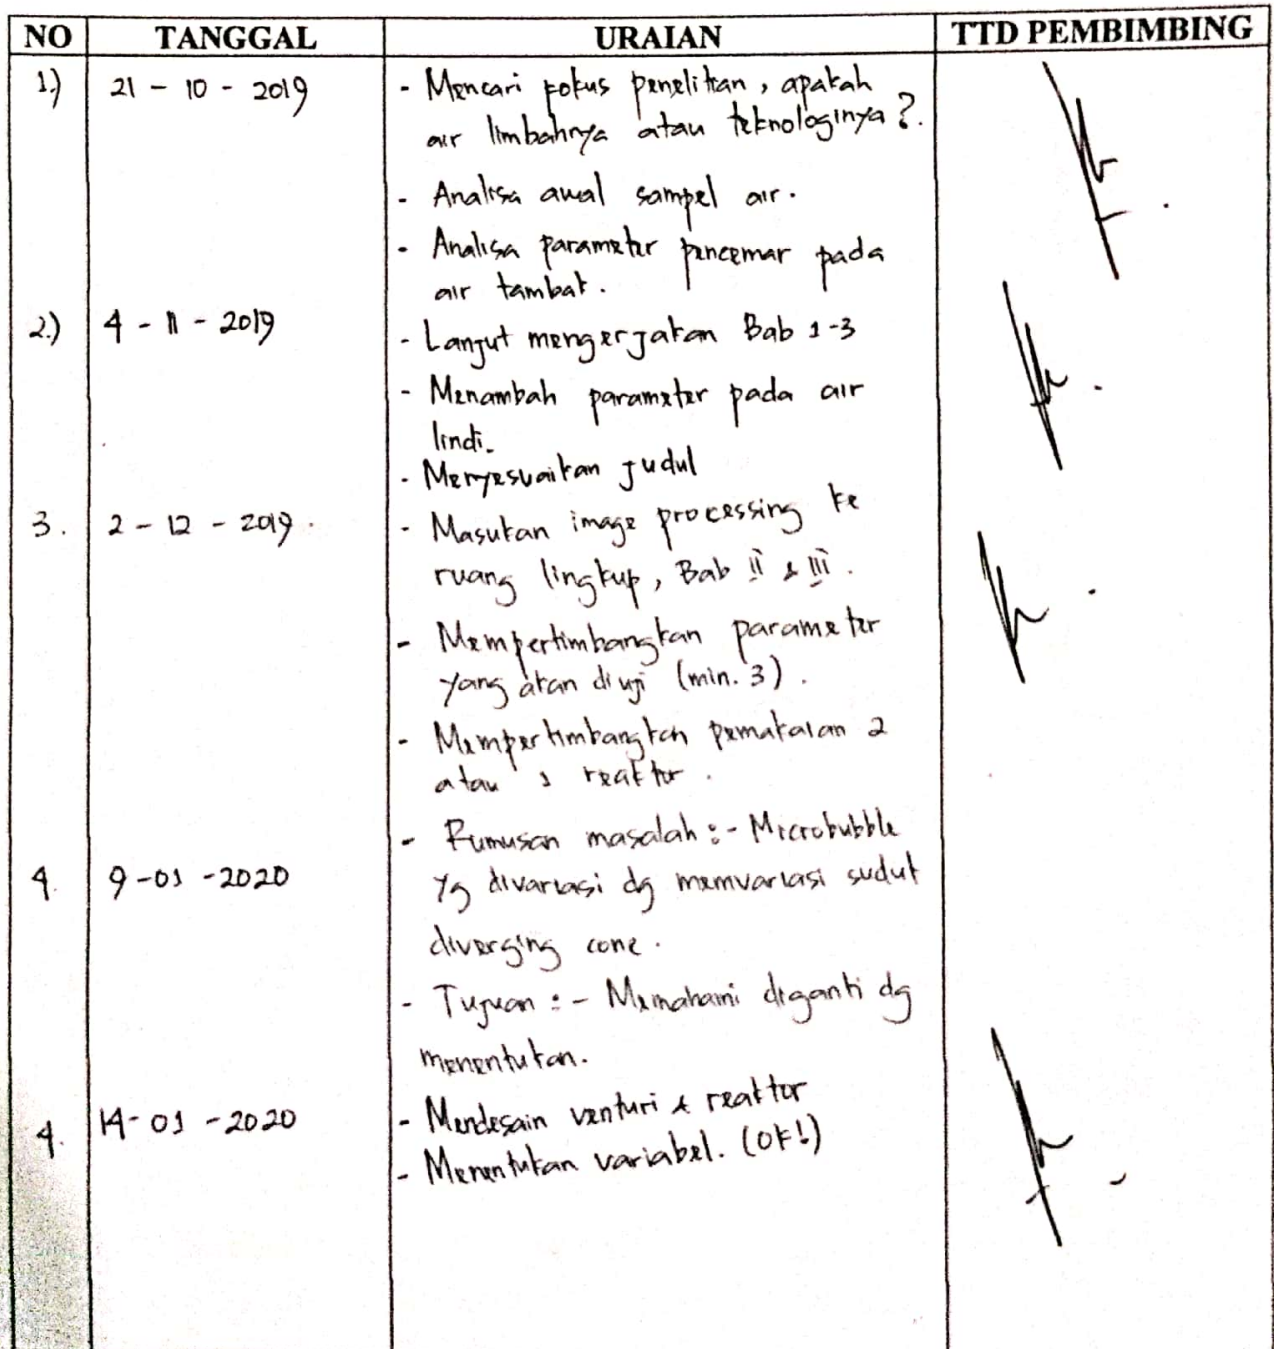 NO TANGGAL URAIAN TTD PEMBIMBING
1.) 21 - 10 - 2019 - Mencari fokus penelitian, apakah
air limbahnya atau teknologinya ?.
- Analisa awal sampel air.
- Analisa parameter pencemar pada
air tambak.
2.) 4 - 11 - 2019 - Lanjut mengerjakan Bab 1-3
- Menambah parameter pada air
lindi.
- Menyesuaikan judul
3. 2 - 12 - 2019. - Masukan image processing ke
ruang lingkup, Bab II & III.
- Mempertimbangkan parameter
yang akan diuji (min. 3).
- Mempertimbangkan pemakaian 2
atau 1 reaktor.
- Rumusan masalah :- Microbubble
4. 9 -01 -2020 yg divariasi dg memvariasi sudut
diverging cone.
- Tujuan :- Memahami diganti dg
menentukan.
4. 14- 01 -2020 - Mendesain venturi & reaktor
- Menentukan variabel. (OK!)